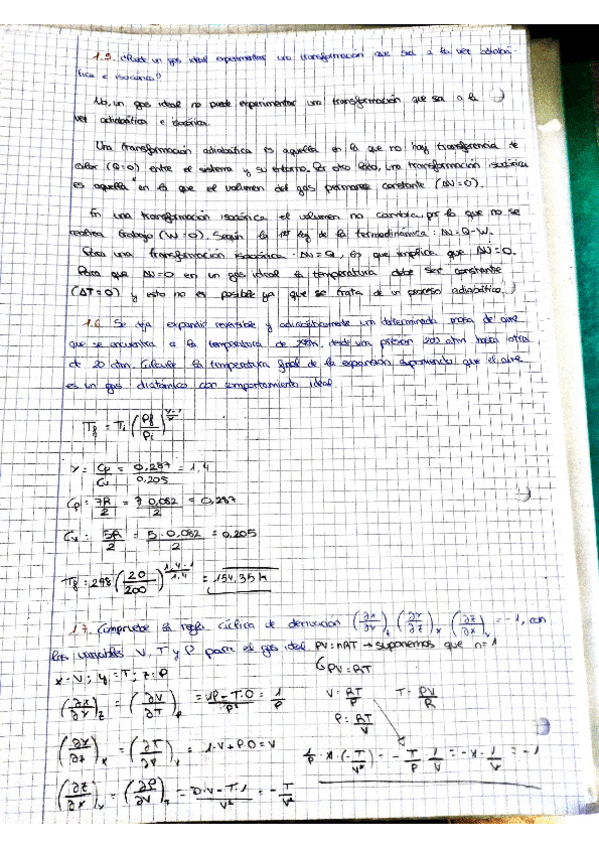 1.5. ¿Puede un gas ideal experimentar una transformación que sea a la vez adiabá-
tica e isocórica?
No, un gas ideal no puede experimentar una transformación que sea a la
vez adiabática e isocórica.
Una transformación adiabática es aquella en la que no hay transferencia de
calor (Q=0) entre el sistema y su entorno. Por otro lado, una transformación isocórica
es aquella en la que el volumen del gas permanece constante (ΔV=0).
En una transformación isocórica el volumen no cambia, por lo que no se
realiza trabajo (W=0). Según la 1ª ley de la termodinámica: ΔU=Q-W.
una transformación isocórica ΔU=Q, es que implica que ΔU=0.
Para que ΔU=0 en un gas ideal la temperatura debe ser constante
(ΔT=0) y esto no es posible ya que se trata de un proceso adiabático.
1.6. Se deja expandir reversible y adiabáticamente una determinada masa de aire
que se encuentra a la temperatura de desde una presión 200 atm hasta otra
de 20 atm. Calcule la temperatura final de la expansión suponiendo que el aire
es un gas diatómico con comportamiento ideal
Tf = Ti (Pf/Pi)^(γ-1/γ)
γ = Cp/Cv = 0,287/0,205 = 1,4
Cp = 7R/2 = 7·0,082/2 = 0,287
Cv = 5R/2 = 5·0,082/2 = 0,205
Tf = 298 (20/200)^(1,4-1/1,4) = 154,35 K
1.7. Compruebe la regla cíclica de derivación (∂x/∂y)z (∂y/∂z)x (∂z/∂x)y = -1, con
las variables V, T y P para el gas ideal PV=nRT → suponemos que n=1
PV=RT
x=V; y=T; z=P
(∂x/∂y)z = (∂V/∂T)p = 1P-T·0/P² = 1/P V=RT/P T=PV/R
P=RT/V
(∂y/∂z)x = (∂T/∂P)v = 1·V+P·0=V 1/P · V · (-T/V²) = -T/P · 1/V = -V · 1/V = -1
(∂z/∂x)y = (∂P/∂V)T = 0·V-T·1/V² = -T/V²